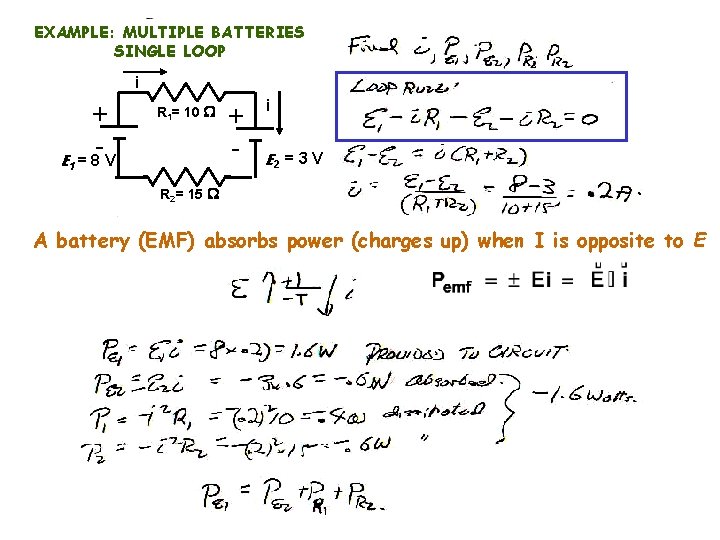 EXAMPLE: MULTIPLE BATTERIES
SINGLE LOOP
Find i, P_E1, P_E2, P_R1, P_R2
i
Loop Rule:
+ R1= 10 Ω + i
E1 - iR1 - E2 - iR2 = 0
- -
E1 = 8 V E2 = 3 V
E1 - E2 = i(R1+R2)
R2= 15 Ω
i = E1-E2/(R1+R2) = 8-3/10+15 = .2A
A battery (EMF) absorbs power (charges up) when I is opposite to E
E ↑ + - ↓ i
Pemf = ± Ei = E i
P_E1 = E1i = 8x.2) = 1.6W PROVIDED TO CIRCUIT.
P_E2 = E2i = -3x.6 = -.6W absorbed.
P1 = -i²R1 = -(.2)²10 = -.4W dissipated
-1.6 Watts.
P2 = -i²R2 = -(.2)²15 = -.6W "
P_E1 = P_E2 + P_R1 + P_R2.